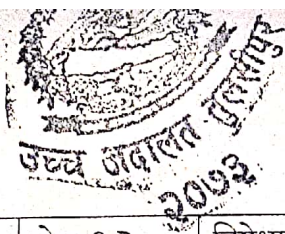 उच्च अदालत तुलसीपुर
२०७३